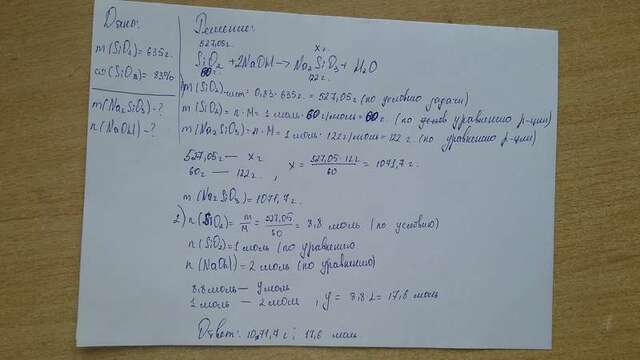 Дано:
m(SiO₂)=635г
ω(SiO₂)=83%
m(Na₂SiO₃)-?
n(NaOH)-?
Решение:
527,05г x г
SiO₂+2NaOH→Na₂SiO₃+H₂O
60г 122г
m(SiO₂)чист.=0,83·635г=527,05г (по условию задачи)
m(SiO₂)=n·M=1моль·60г/моль=60г (по уравнению р-ции)
m(Na₂SiO₃)=n·M=1моль·122г/моль=122г (по уравнению р-ции)
527,05г — x г
60г — 122г , x=527,05·122/60=1071,7г.
m(Na₂SiO₃)=1071,7г.
2) n(SiO₂)=m/M=527,05/60=8,8моль (по условию)
n(SiO₂)=1моль (по уравнению
n(NaOH)=2моль (по уравнению)
8,8моль — y моль
1моль — 2моль , y=8,8·2=17,6моль
Ответ: 1071,7г; 17,6 моль